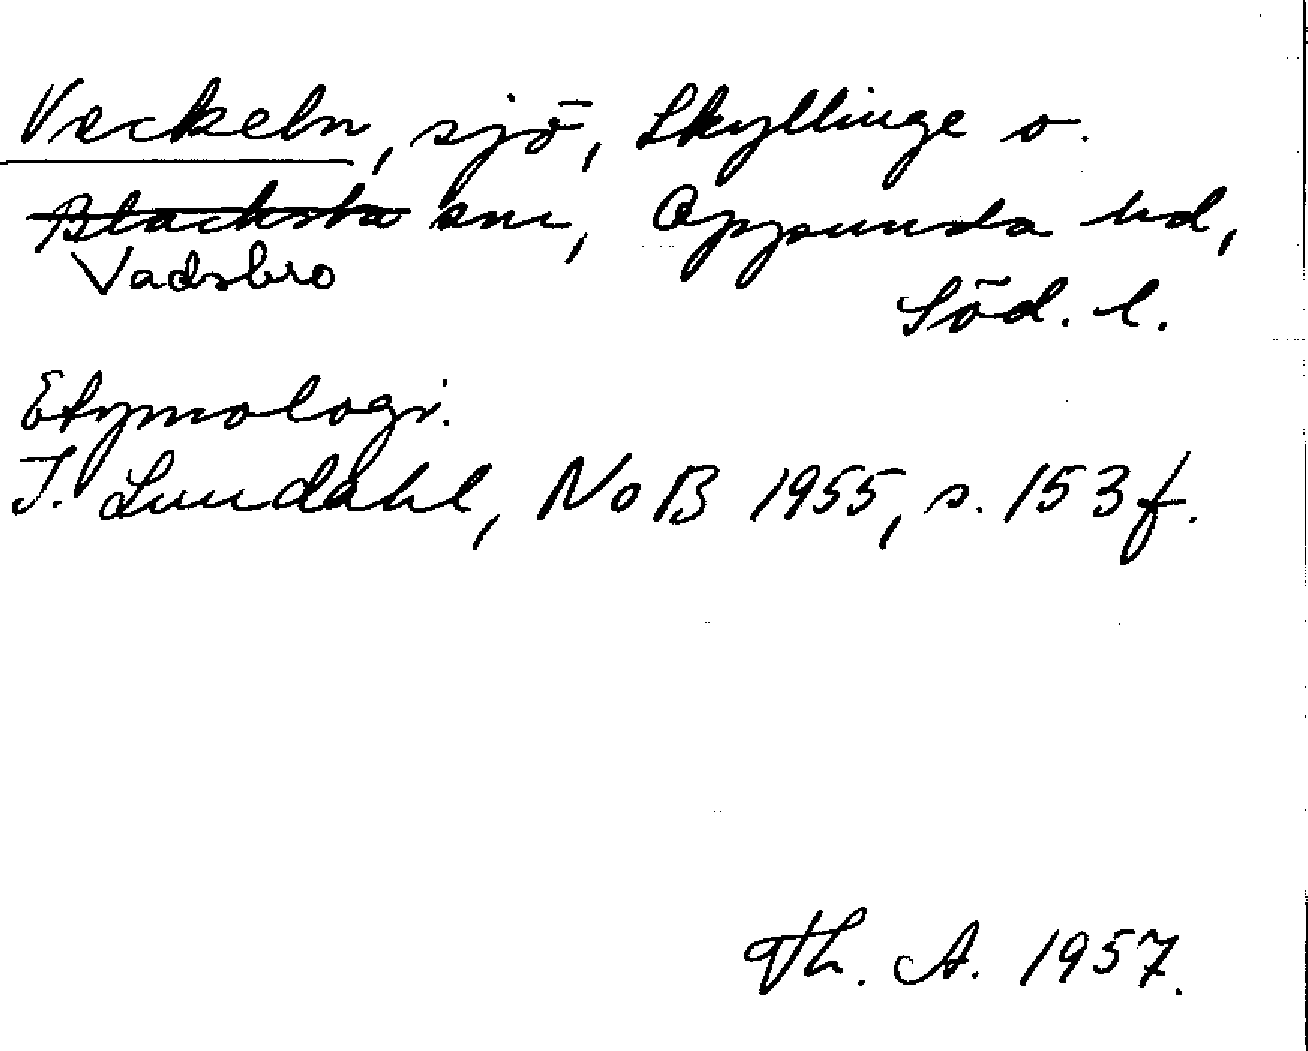 Veckeln, sjö, Skyllinge o.
Blacksta snr, Oppunda hd,
Vadsbro
Söd. l.
Etymologi.
I. Lundahl, NoB 1955, s. 153 f.
Th. A. 1957.